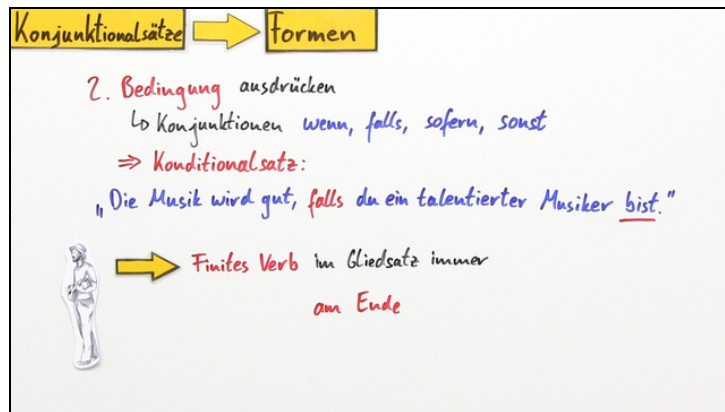 Konjunktionalsätze
Formen
2. Bedingung ausdrücken
↳ Konjunktionen wenn, falls, sofern, sonst
⇒ Konditionalsatz:
„Die Musik wird gut, falls du ein talentierter Musiker bist."
Finites Verb im Gliedsatz immer
am Ende